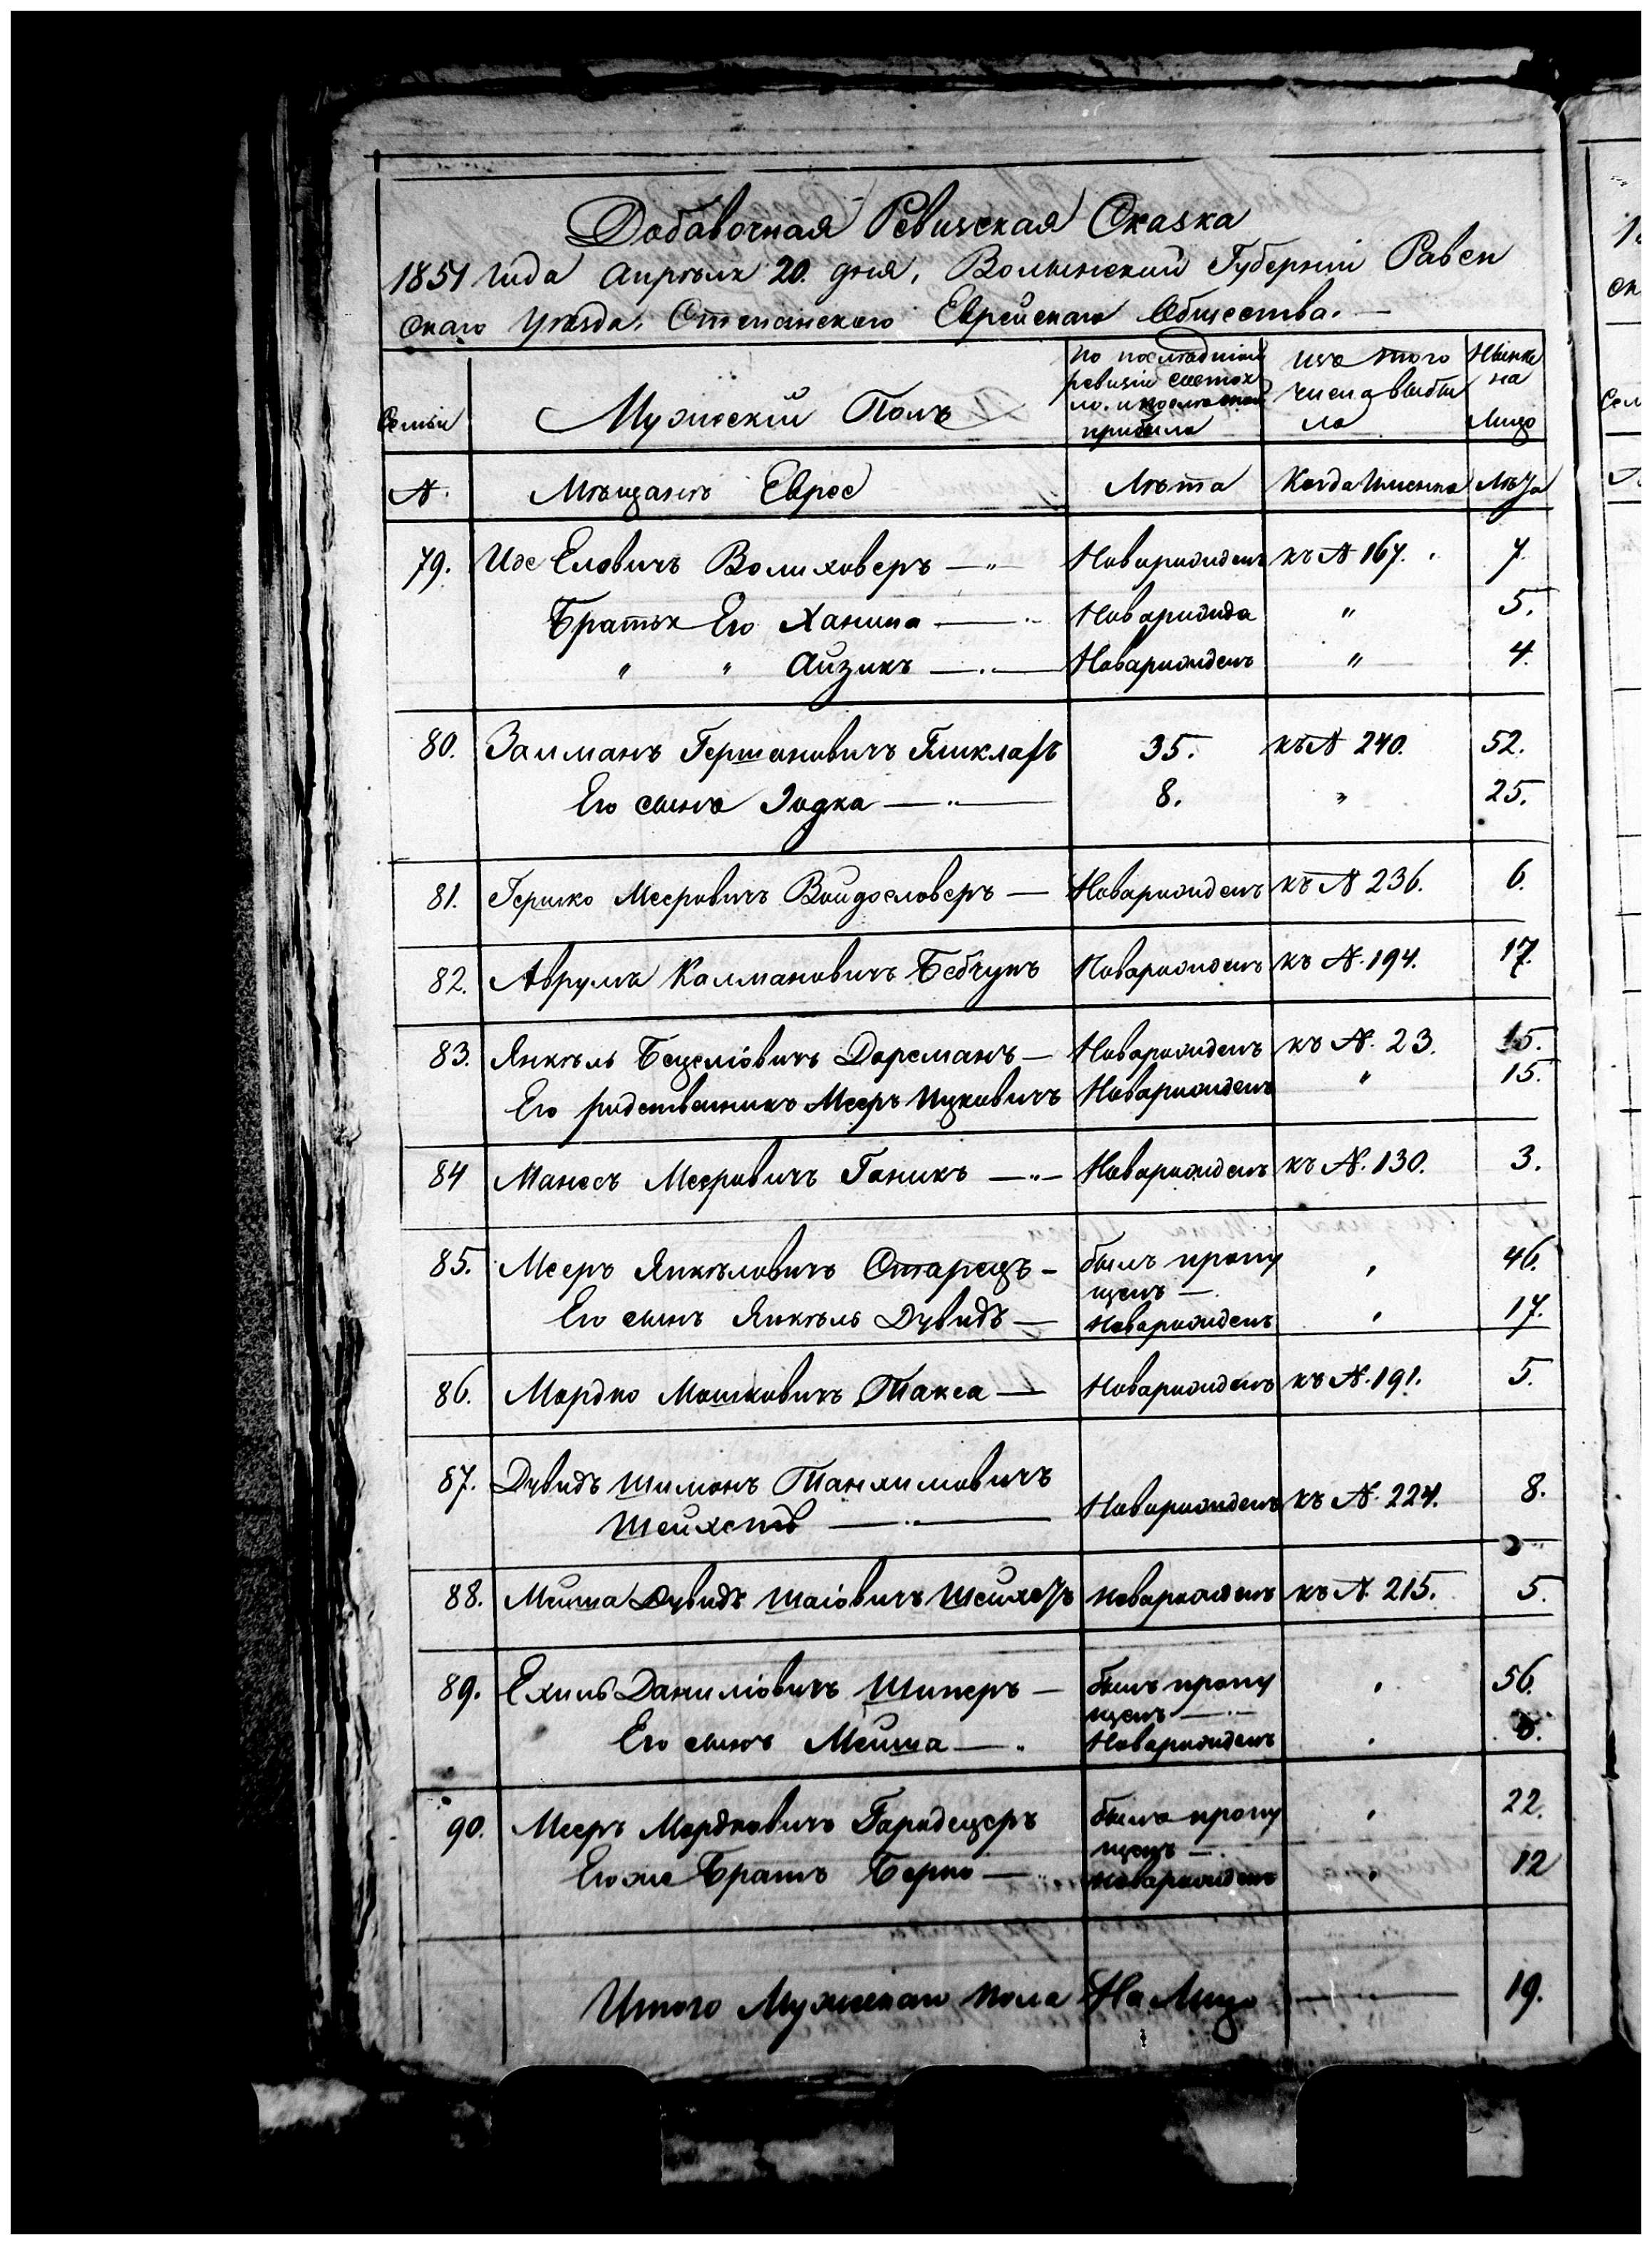 Добавочная Ревизская Сказка
1851 Года Апрѣля 20. дня, Волынской Губерніи Равен
скаго Уѣзда, Степанскаго Еврейскаго Общества. —
Семьи
Мужескій Полъ
по послѣдніей ревизіи состоя ло. и послѣ оной прибыло
изъ того числа выбы ло
Нынѣ на Лицо
№.
Мѣщанѣ Евреe
Лѣта
Когда Именно
Лѣта
79. Иос Еловичъ Волиховеръ — Новорожденъ къ № 167. 7
Братья Его Ханина — Новорожда " 5.
" " Айзикъ — Новорожденъ " 4.
80. Залманъ Гершоновичъ Гликлахъ 35. къ № 240. 52.
Его сынъ Іодка — 8. " 25.
81. Гершко Мееровичъ Войдословеръ — Новорожденъ къ № 236. 6.
82. Аврумъ Калмановичъ Бебчукъ Новорожденъ къ №. 194. 17.
83. Янкѣль Бецеліовичъ Дорсманъ — Новорожденъ къ №. 23. 15.
Его родственникъ Мееръ Ицковичъ Новорожденъ " 15.
84 Манесъ Мееровичъ Ганикъ — Новорожденъ къ №. 130. 3.
85. Мееръ Янкѣловичъ Старецъ — былъ пропу , 46.
щенъ —
Его сынъ Янкѣль Дувидъ — Новорожденъ , 17.
86. Мордко Мошковичъ Такса — Новорожденъ къ №. 191. 5.
87. Дувидъ Шимонъ Танхимовичъ
Шейхетъ — Новорожденъ къ №. 224. 8.
88. Мейша Дувидъ Шаіовичъ Шейхетъ Новорожденъ къ №. 215. 5.
89. Ехиль Даниліовичъ Шиперъ — былъ пропу , 56.
щенъ —
Его сынъ Мейша — Новорожденъ ,
90. Мееръ Мордковичъ Городецеръ былъ пропу , 22.
щенъ —
Его же Братъ Берко — Новорожденъ , 12
Итого Мужескаго пола На Лицо — 19.